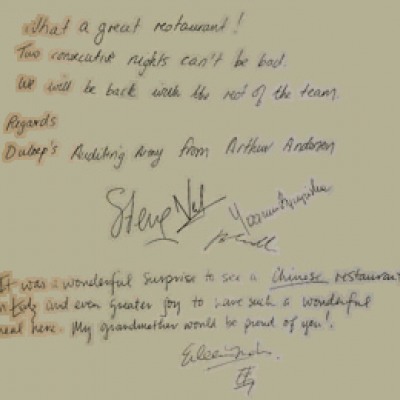 What a great restaurant!
Two consecutive nights can't be bad.
We will be back with the rest of the team.
Regards
Duleep's Auditing Army from Arthur Andersen
Steve
It was a wonderful surprise to see a Chinese restaurant
and even greater joy to have such a wonderful
meal here. My grandmother would be proud of you!
Eileen